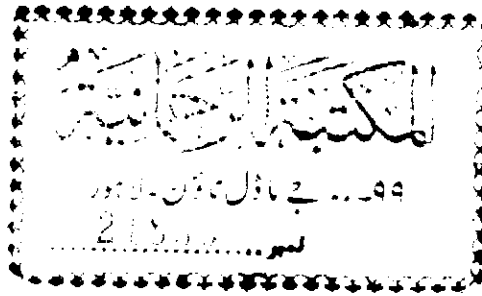 المكتبة الرحمانية
۹۹.... جے ماڈل ٹاؤن۔ لاہور
نمبر